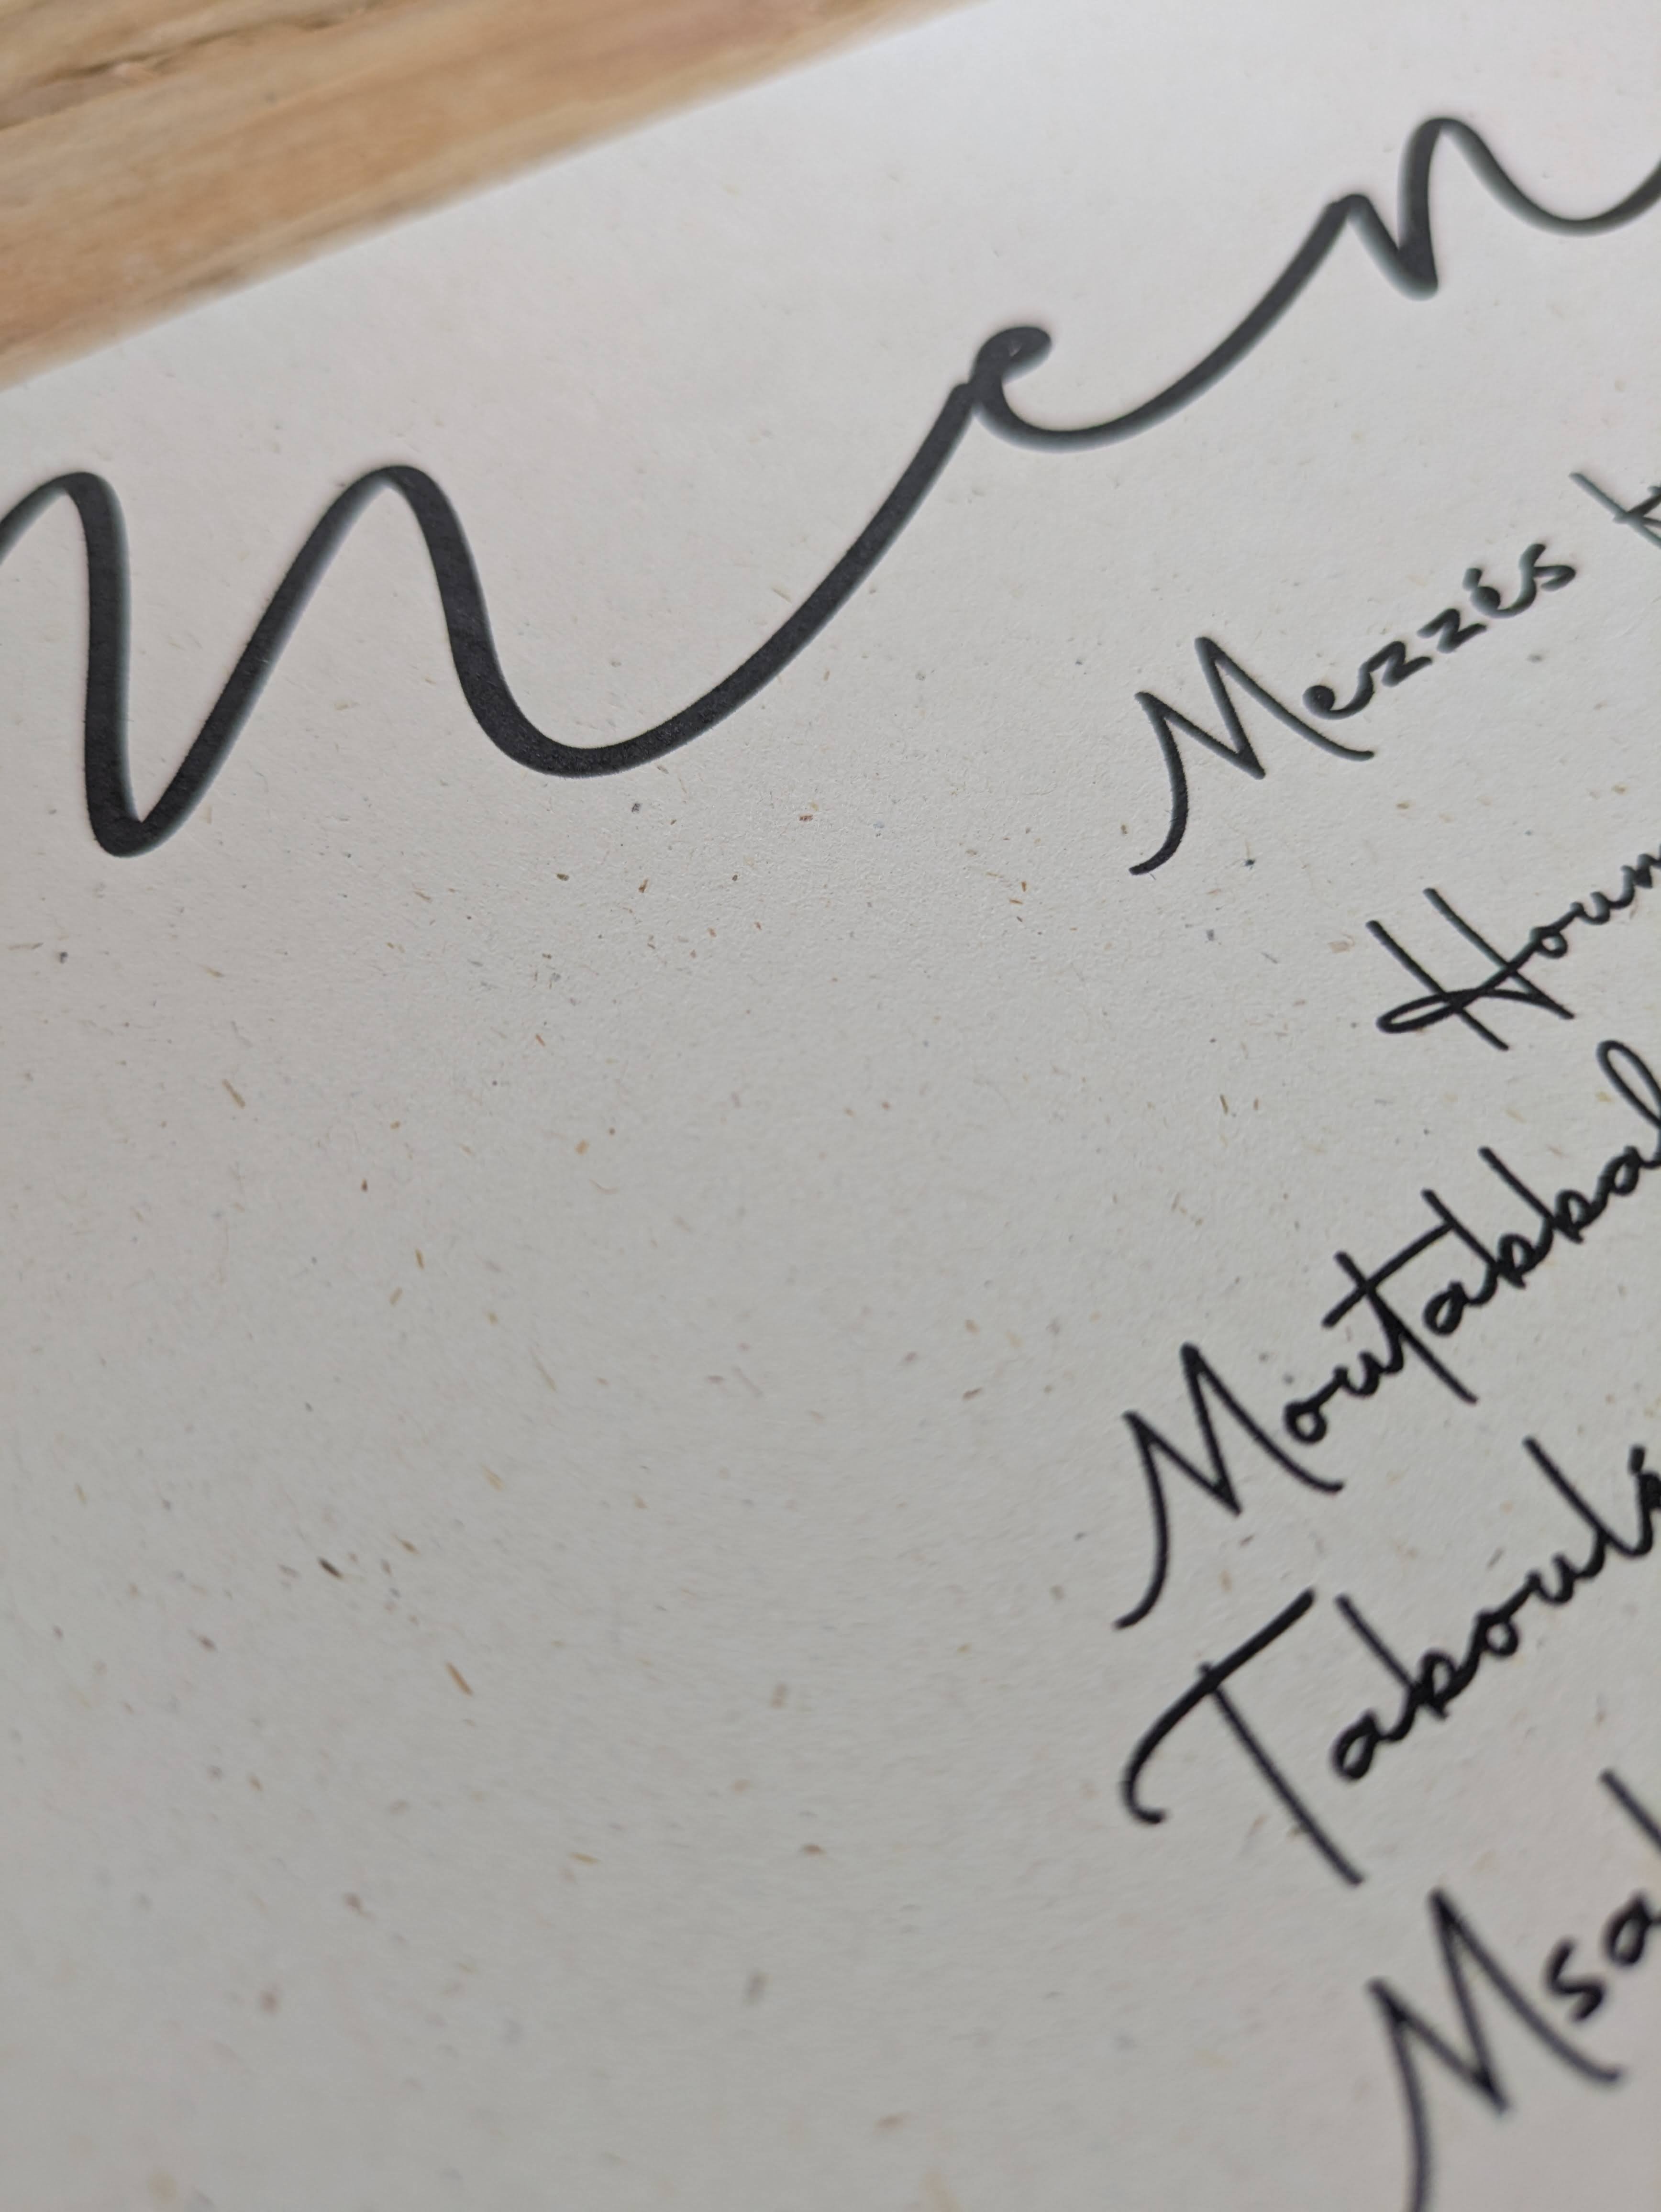 Men
Mezzés
Houm
Moutabbal
Taboulé
Msa